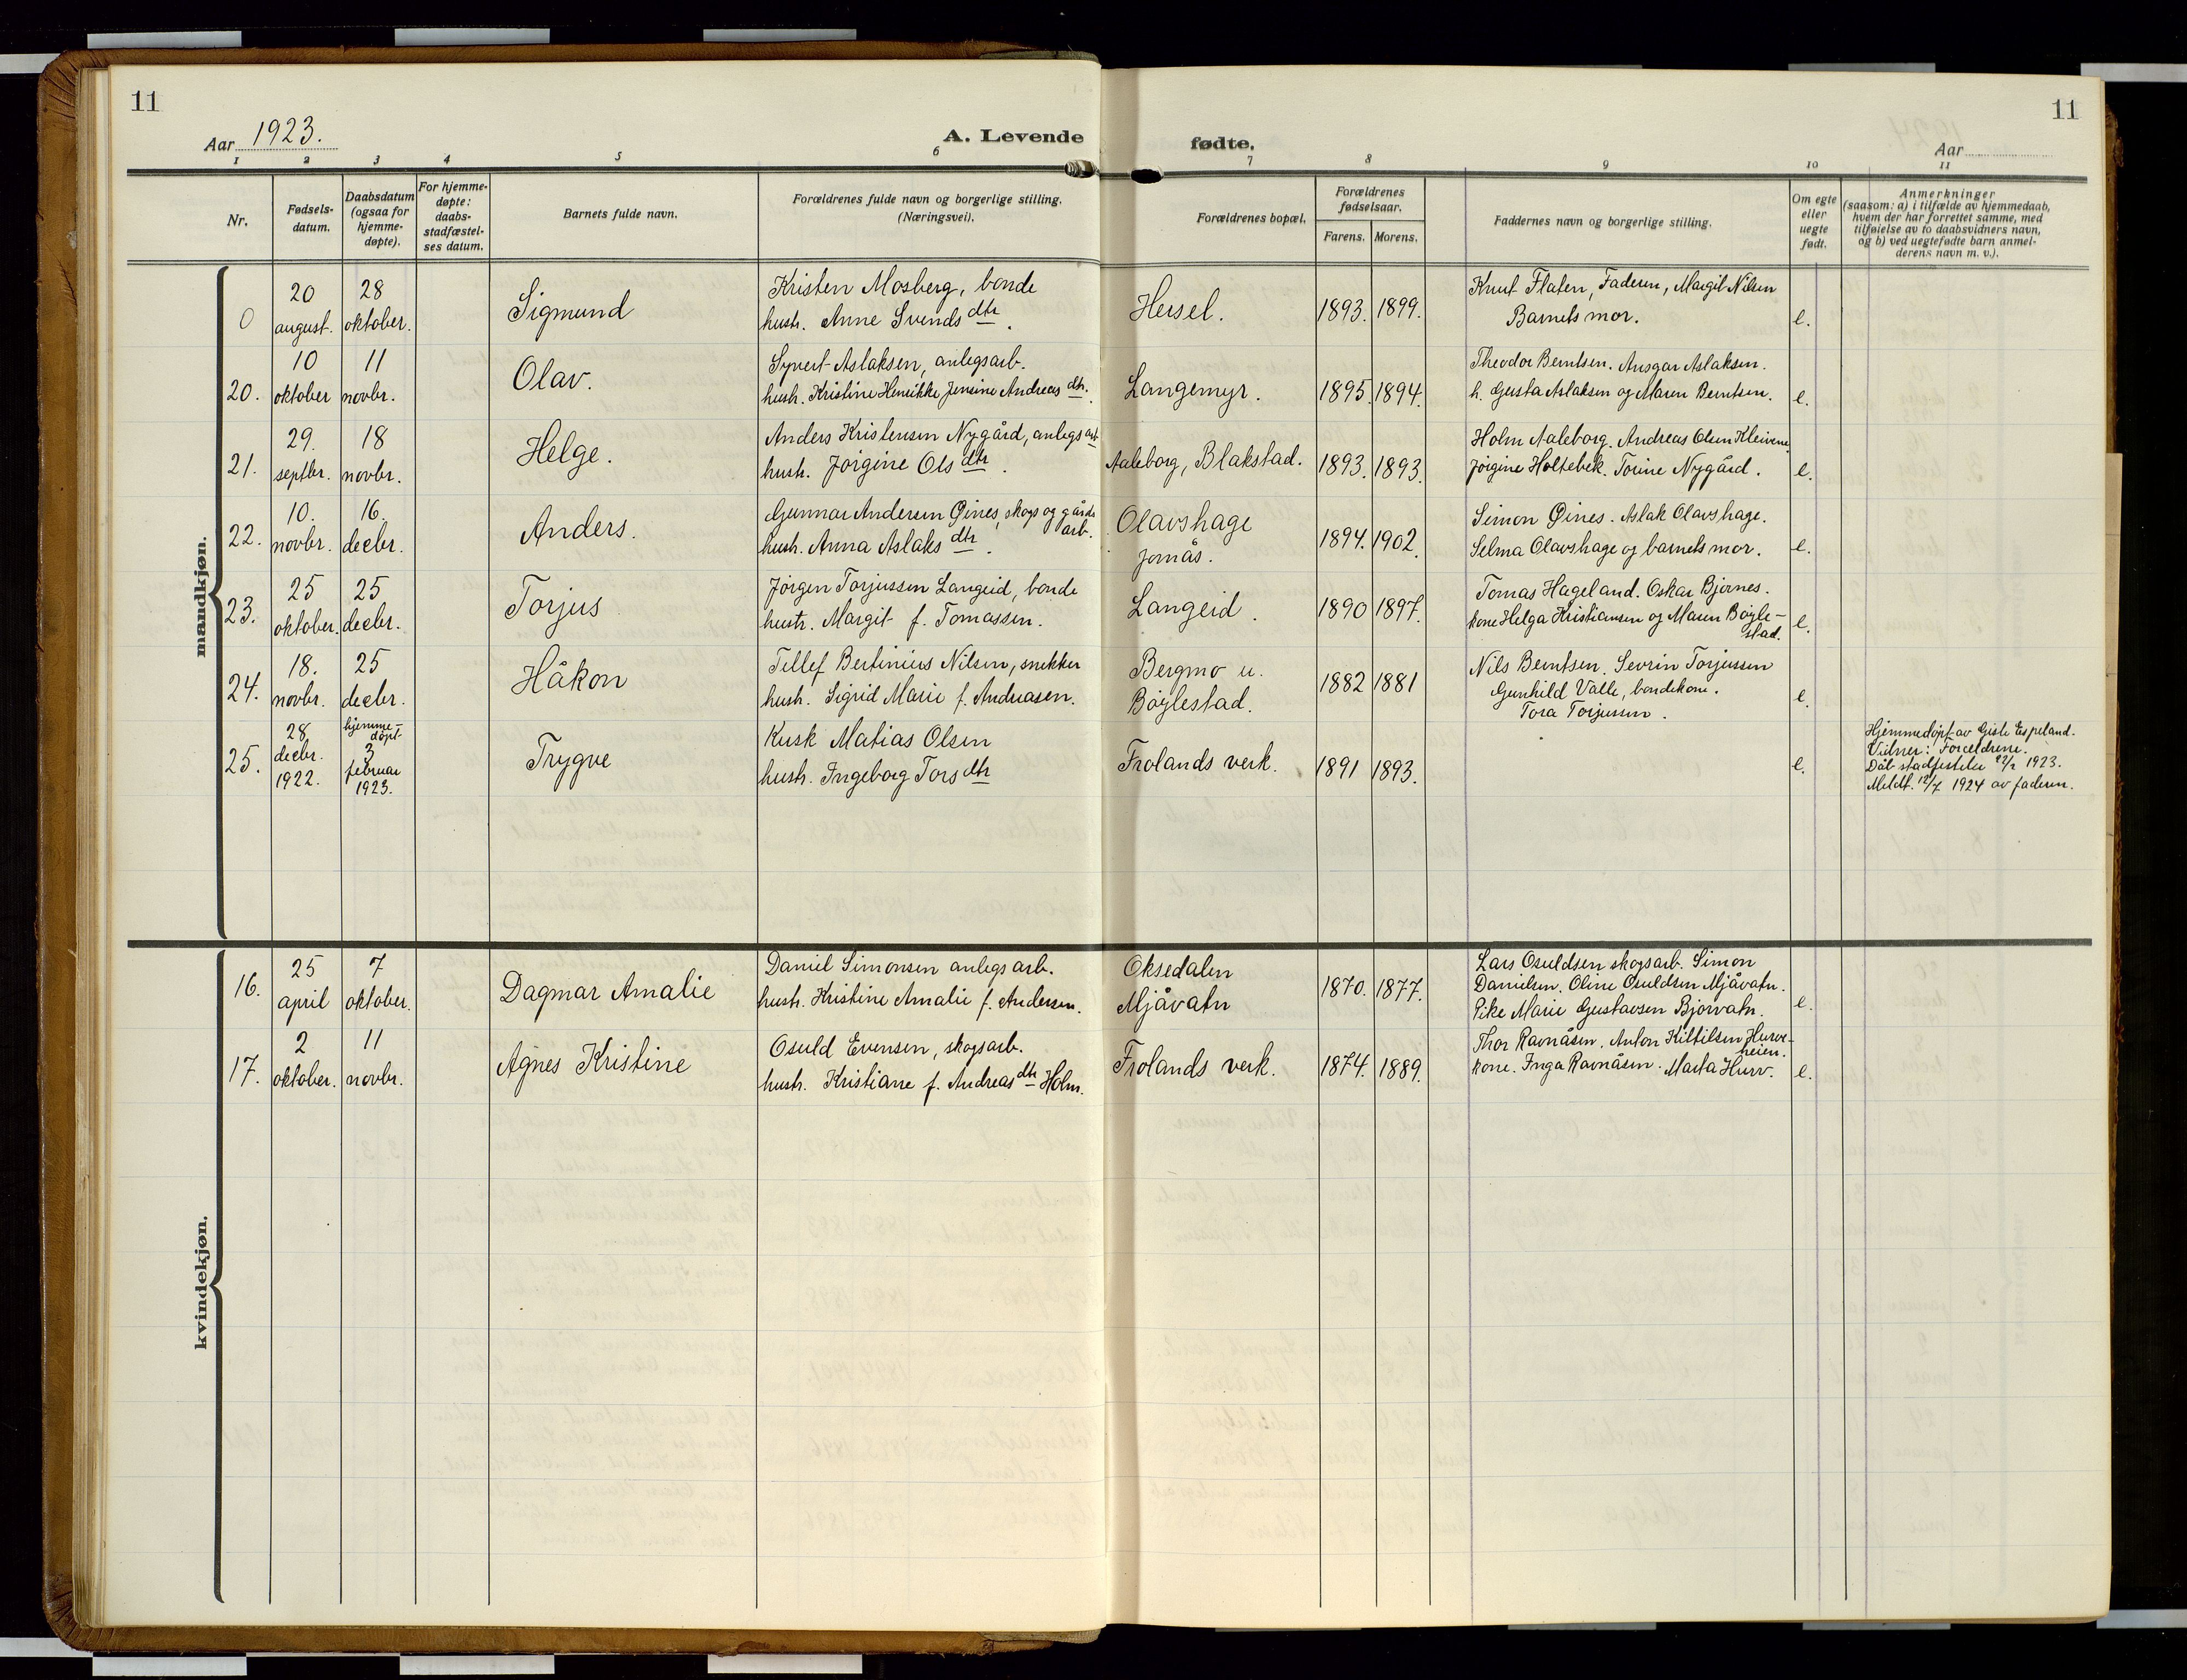 11
11
Aar 1923.
A. Levende
fødte.
Aar
1 2 3 4 5 6 7 8 9 10 11
Nr.
Fødsels-
datum.
Daabsdatum
(ogsaa for
hjemme-
døpte).
For hjemme-
døpte:
daabs-
stadfæstel-
ses datum.
Barnets fulde navn.
Forældrenes fulde navn og borgerlige stilling.
(Næringsvei).
Forældrenes bopæl.
Forældrenes
fødselsaar.
Farens. Morens.
Faddernes navn og borgerlige stilling.
Om egte
eller
uegte
født.
Anmerkninger
(saasom: a) i tilfælde av hjemmedaab,
hvem der har forrettet samme, med
tilføielse av to daabsvidners navn,
og b) ved uegtefødte barn anmel-
derens navn m. v.).
mandkjøn.
0
20
august.
28
oktober.
Sigmund
Kristen Mosberg, bonde
hustr. Anne Svends dtr.
Hersel.
1893. 1899.
Knut Flaten, Faderen, Margit Nilsen
Barnets mor.
e.
20.
10
oktober
11
novbr.
Olav.
Syvert Aslaksen, anlegsarb.
hustr. Kristine Henrikke Jensine Andreas dtr.
Langemyr.
1895. 1894.
Theodor Berntsen. Ansgar Aslaksen.
h. Gusta Aslaksen og Maren Berntsen.
e.
21.
29.
septbr.
18
novbr.
Helge.
Anders Kristensen Nygård, anlegsarb
hustr. Jörgine Ols dtr.
Aaleborg, Blakstad.
1893. 1893.
Holm Aaleborg. Andreas Olsen Kleivene
Jörgine Holtebek. Torine Nygård.
e.
22.
10.
novbr.
16.
decbr.
Anders.
Gunnar Andersen Øines, skogs og gårds
arb.
hustr. Anna Aslaks dtr.
Olavshage
Jomås.
1894. 1902.
Simon Øines. Aslak Olavshage.
Selma Olavshage og barnets mor.
e.
23.
25
oktober.
25
decbr.
Torjus
Jörgen Torjussen Langeid, bonde
hustr. Margit f. Tomassen.
Langeid.
1890 1897.
Tomas Hageland. Oskar Bjørnes.
kone Helga Kristiansen og Maren Bøyle-
stad.
e.
24.
18.
novbr.
25
decbr.
Håkon
Tellef Bertinius Nilsen, snekker
hustr. Sigrid Marie f. Andreasen.
Bergmo u.
Böylestad.
1882 1881
Nils Berntsen. Sevrin Torjussen
Gunhild Valle, bondekone.
Tora Torjussen.
e.
25.
28
decbr.
1922.
hjemme-
døpt
3
februar
1923.
Trygve
Kusk Matias Olsen
hustr. Ingeborg Tors dtr
Frolands verk.
1891 1893.
e.
Hjemmedöpt av Gisle Espeland.
Vidner: Foreldrene.
Dåb stadfestelse 1923.
Meldt. 12/7 1924 av faderen.
kvindekjøn.
16.
25
april
7
oktober.
Dagmar Amalie
Daniel Simonsen anlegsarb.
hustr. Kristine Amalie f. Andersen.
Oksedalen
Mjåvatn
1870. 1877.
Lars Osuldsen skogsarb. Simon
Danielsen. Oline Osuldsen Mjåvatn.
Pike Marie Gustavsen Bjorvatn.
e.
17.
2
oktober.
11
novbr.
Agnes Kristine
Osuld Evensen, skogsarb.
hustr. Kristiane f. Andreas dtr Holm.
Frolands verk.
1874. 1889.
Thor Ravnåsen. Anton Kittilsen Hurve-
heien.
kone. Inga Ravnåsen. Marta Hurv.
e.